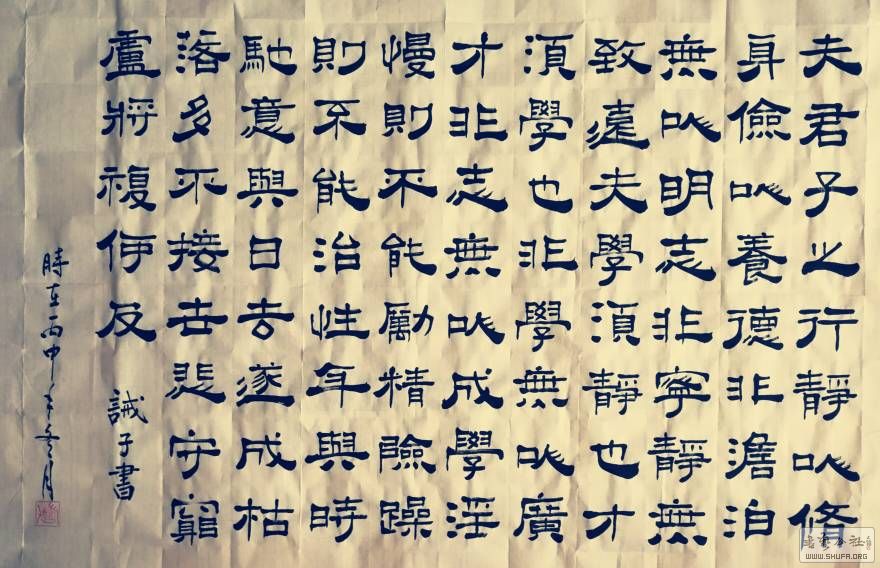 夫君子之行靜以修
身儉以養德非澹泊
無以明志非寧靜無
致遠夫學須靜也才
須學也非學無以廣
才非志無以成學淫
慢則不能勵精險躁
則不能治性年與時
馳意與日去遂成枯
落多不接世悲守窮
盧將複何及
誡子書
時在丙申年冬月
WWW.SHUFA.ORG